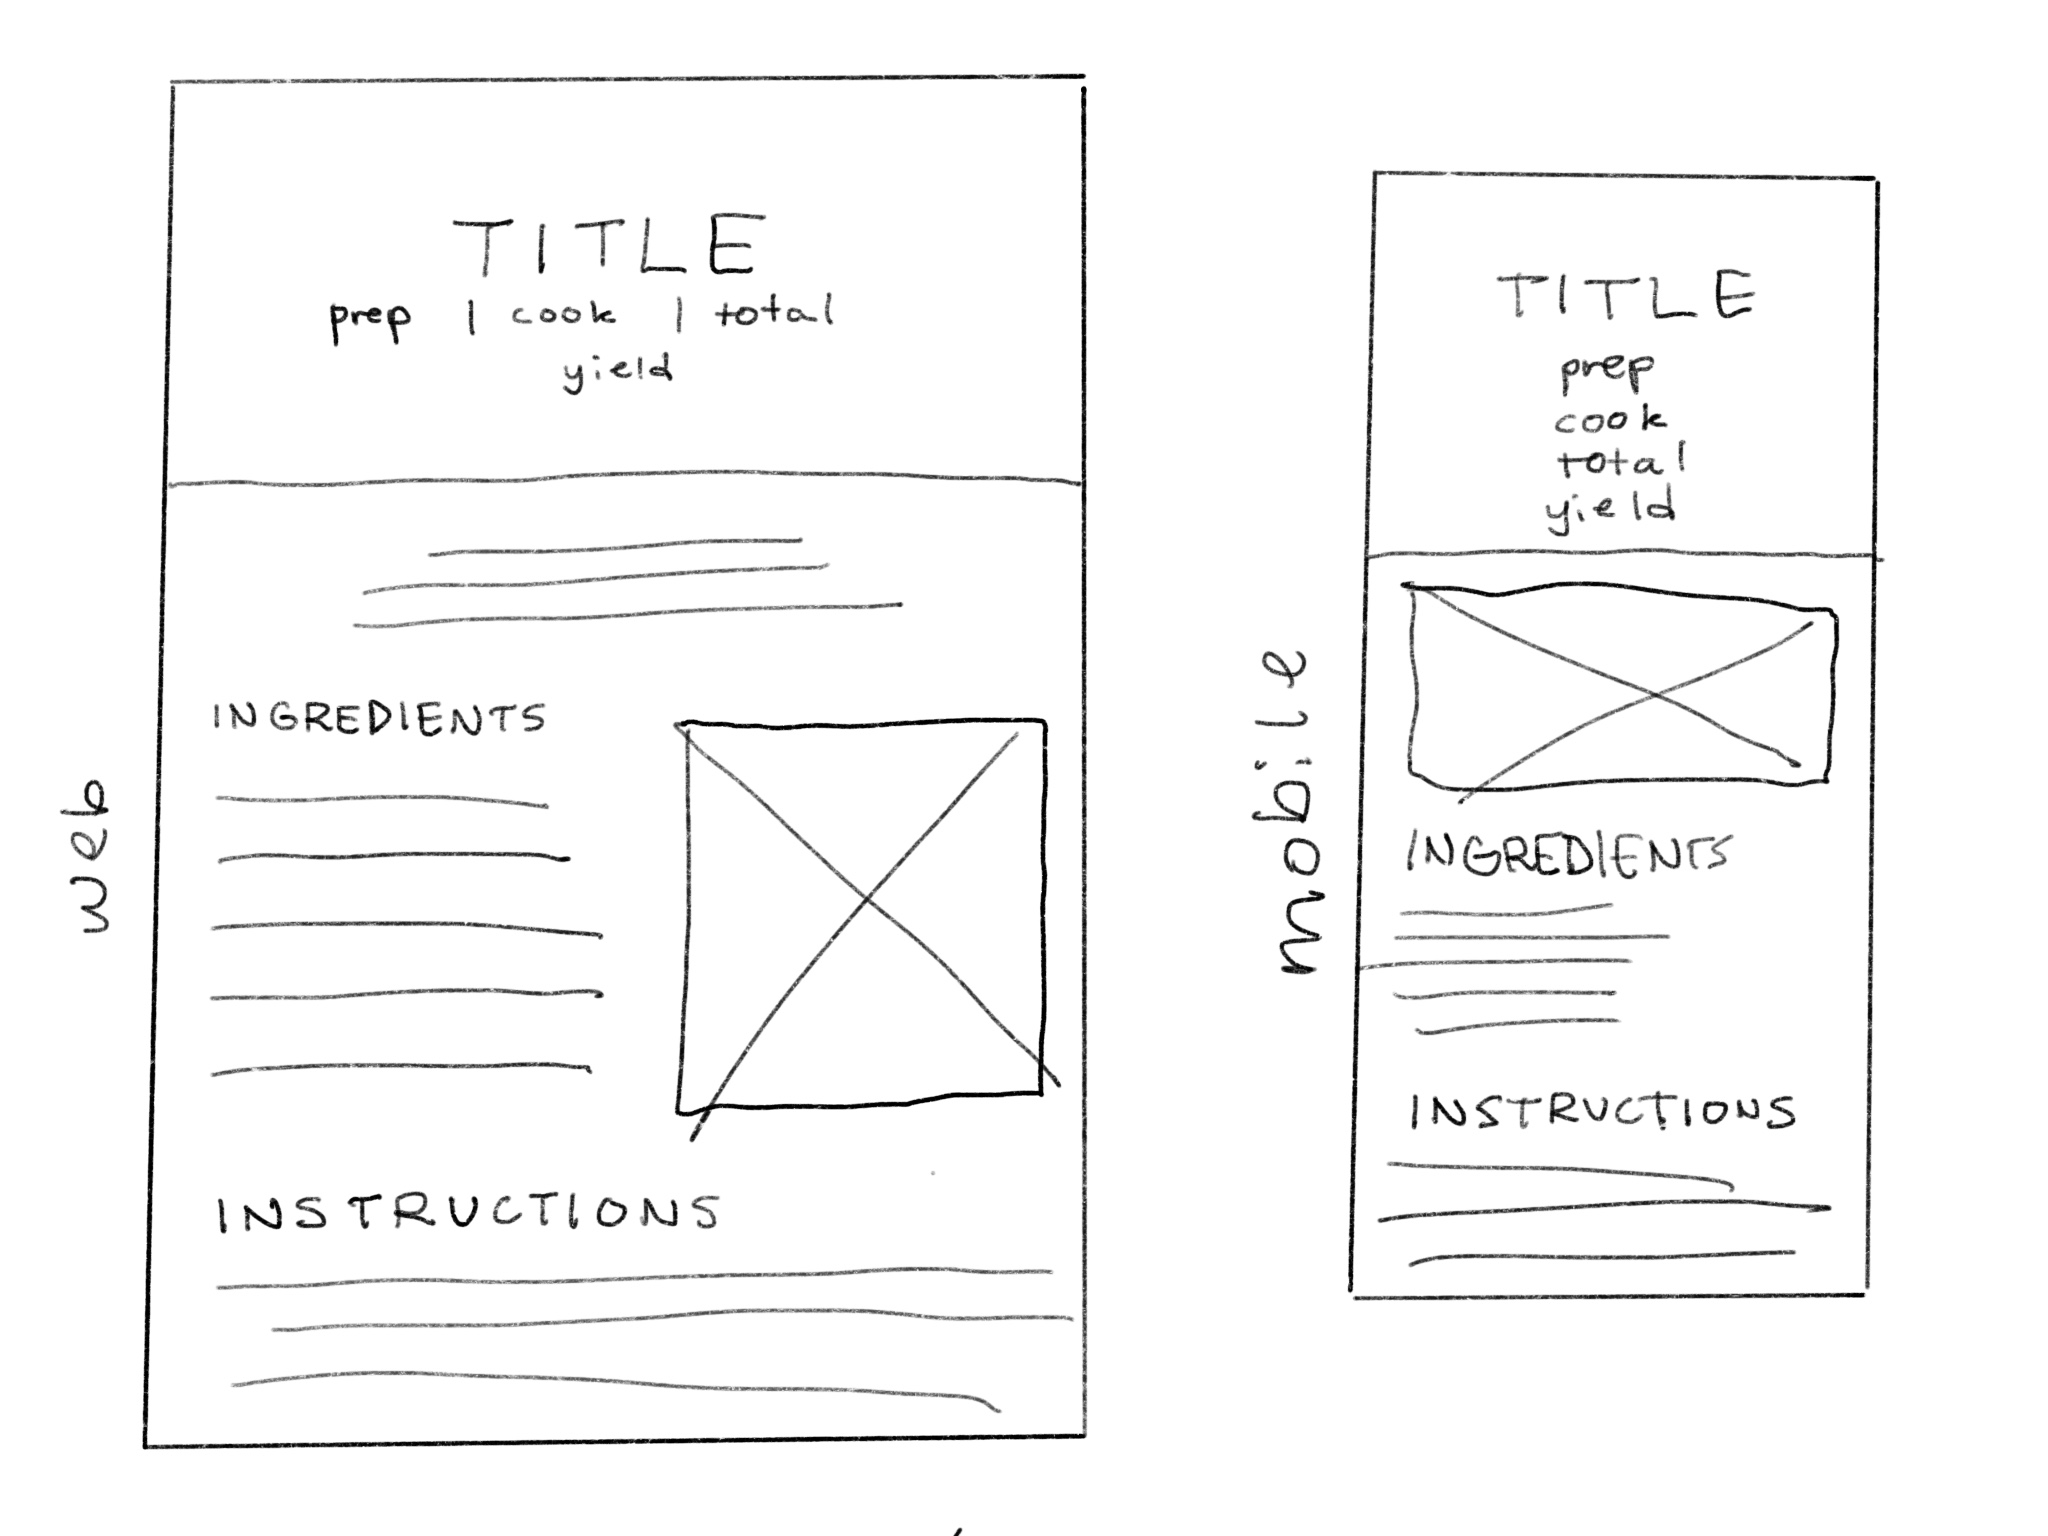 web
TITLE
prep | cook | total
yield
INGREDIENTS
INSTRUCTIONS
mobile
TITLE
prep
cook
total
yield
INGREDIENTS
INSTRUCTIONS